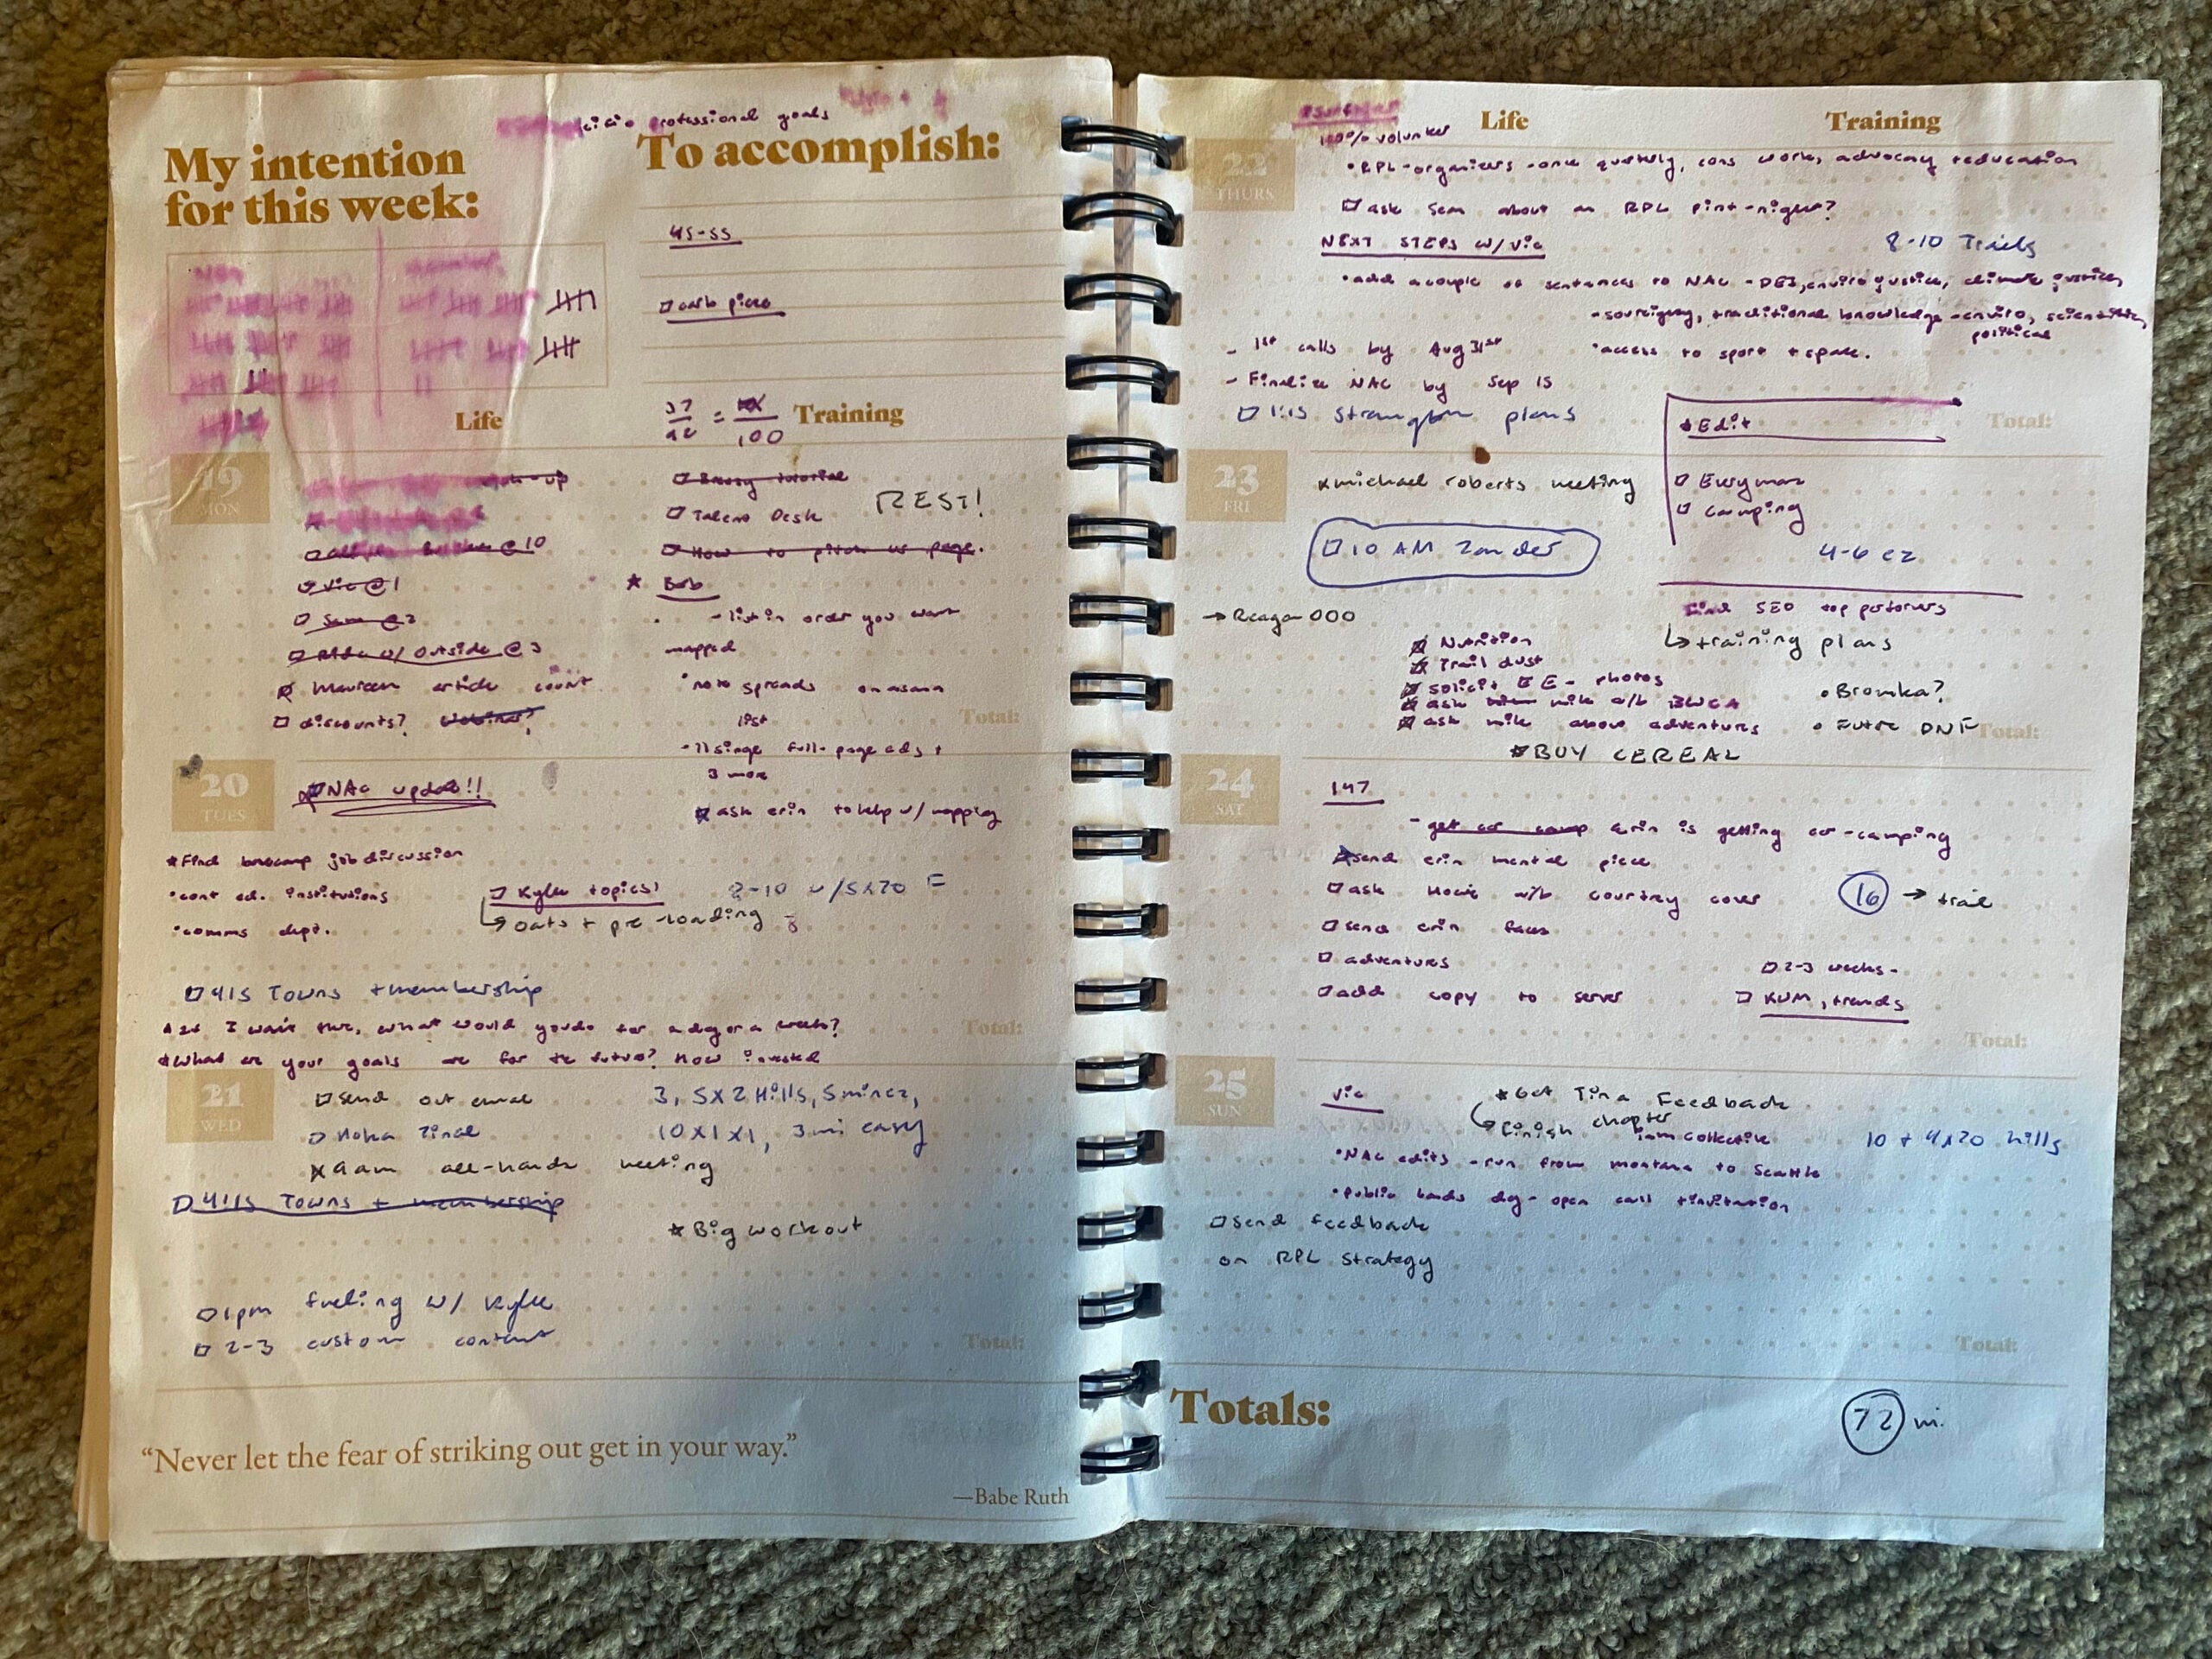 professional goals
My intention
for this week:
To accomplish:
45-55
carb piece
Life
37
= 
100
Training
19
MON
@10
Vic @ 1
Sam @ 2
w/ Outside @ 3
Maureen article count
discounts? Webinar?
Brassy tutorial
Talent Desk
REST!
How to pitch us page.
Bob
- list in order you want
mapped
note spreads on asana
list
- 11 single full-page ads +
3 more
ask erin to help w/ mapping
Total:
20
TUES
NAC update!!
*Find basecamp job discussion
•cont ed. institutions
•comms dept.
Kylee topics!
oats + pre-loading
8-10 w/5x20
415 Towns + membership
I want this, what would you do for a day or a week?
*What are your goals are for the future? How invested
Total:
21
WED
Send out email
Hoka Zinal
9am all-hands meeting
4:15 Towns + membership
3, 5x2 Hills, 5 min ez,
10x1x1, 3 mi easy
*Big workout
1pm fueling w/ Kylee
2-3 custom content
Total:
"Never let the fear of striking out get in your way."
—Babe Ruth
Life
Training
22
THURS
100% volunteer
•RPL-organizers -once quarterly, cons work, advocacy + education
ask Sam about an RPL pint-night?
NEXT STEPS W/ Vic
8-10 Trails
•add a couple of sentences to NAC - DEI, enviro justice, climate justice,
- sovereignty, traditional knowledge - enviro, scientific,
political
- 1st calls by Aug 31st
•access to sport + space.
- Finalize NAC by Sep 15
1:15 plans
*Edit
Total:
23
FRI
michael roberts meeting
Everyman
Camping
10 AM Zander
4-6 ez
→ Reagan 000
Find SEO top performers
training plans
Nutrition
Trail dust
solicit EE - photos
ask mike a/b BWCA
ask mike about adventures
•Bromka?
• Future DNF
Total:
*BUY CEREAL
24
SAT
147
- get car camp erin is getting car-camping
send erin mental piece
ask Howie a/b Courtney cover
16 → trail
send erin faces
adventures
2-3 weeks-
add copy to server
KUM, trends
Total:
25
SUN
Vic
*Get Tina Feedback
finish chapter
collective
10 + 4x20 hills
•NAC edits - run from montana to Seattle
•Public lands day - open call + invitation
Send feedback
on RPL Strategy
Total:
Totals:
72 mi.